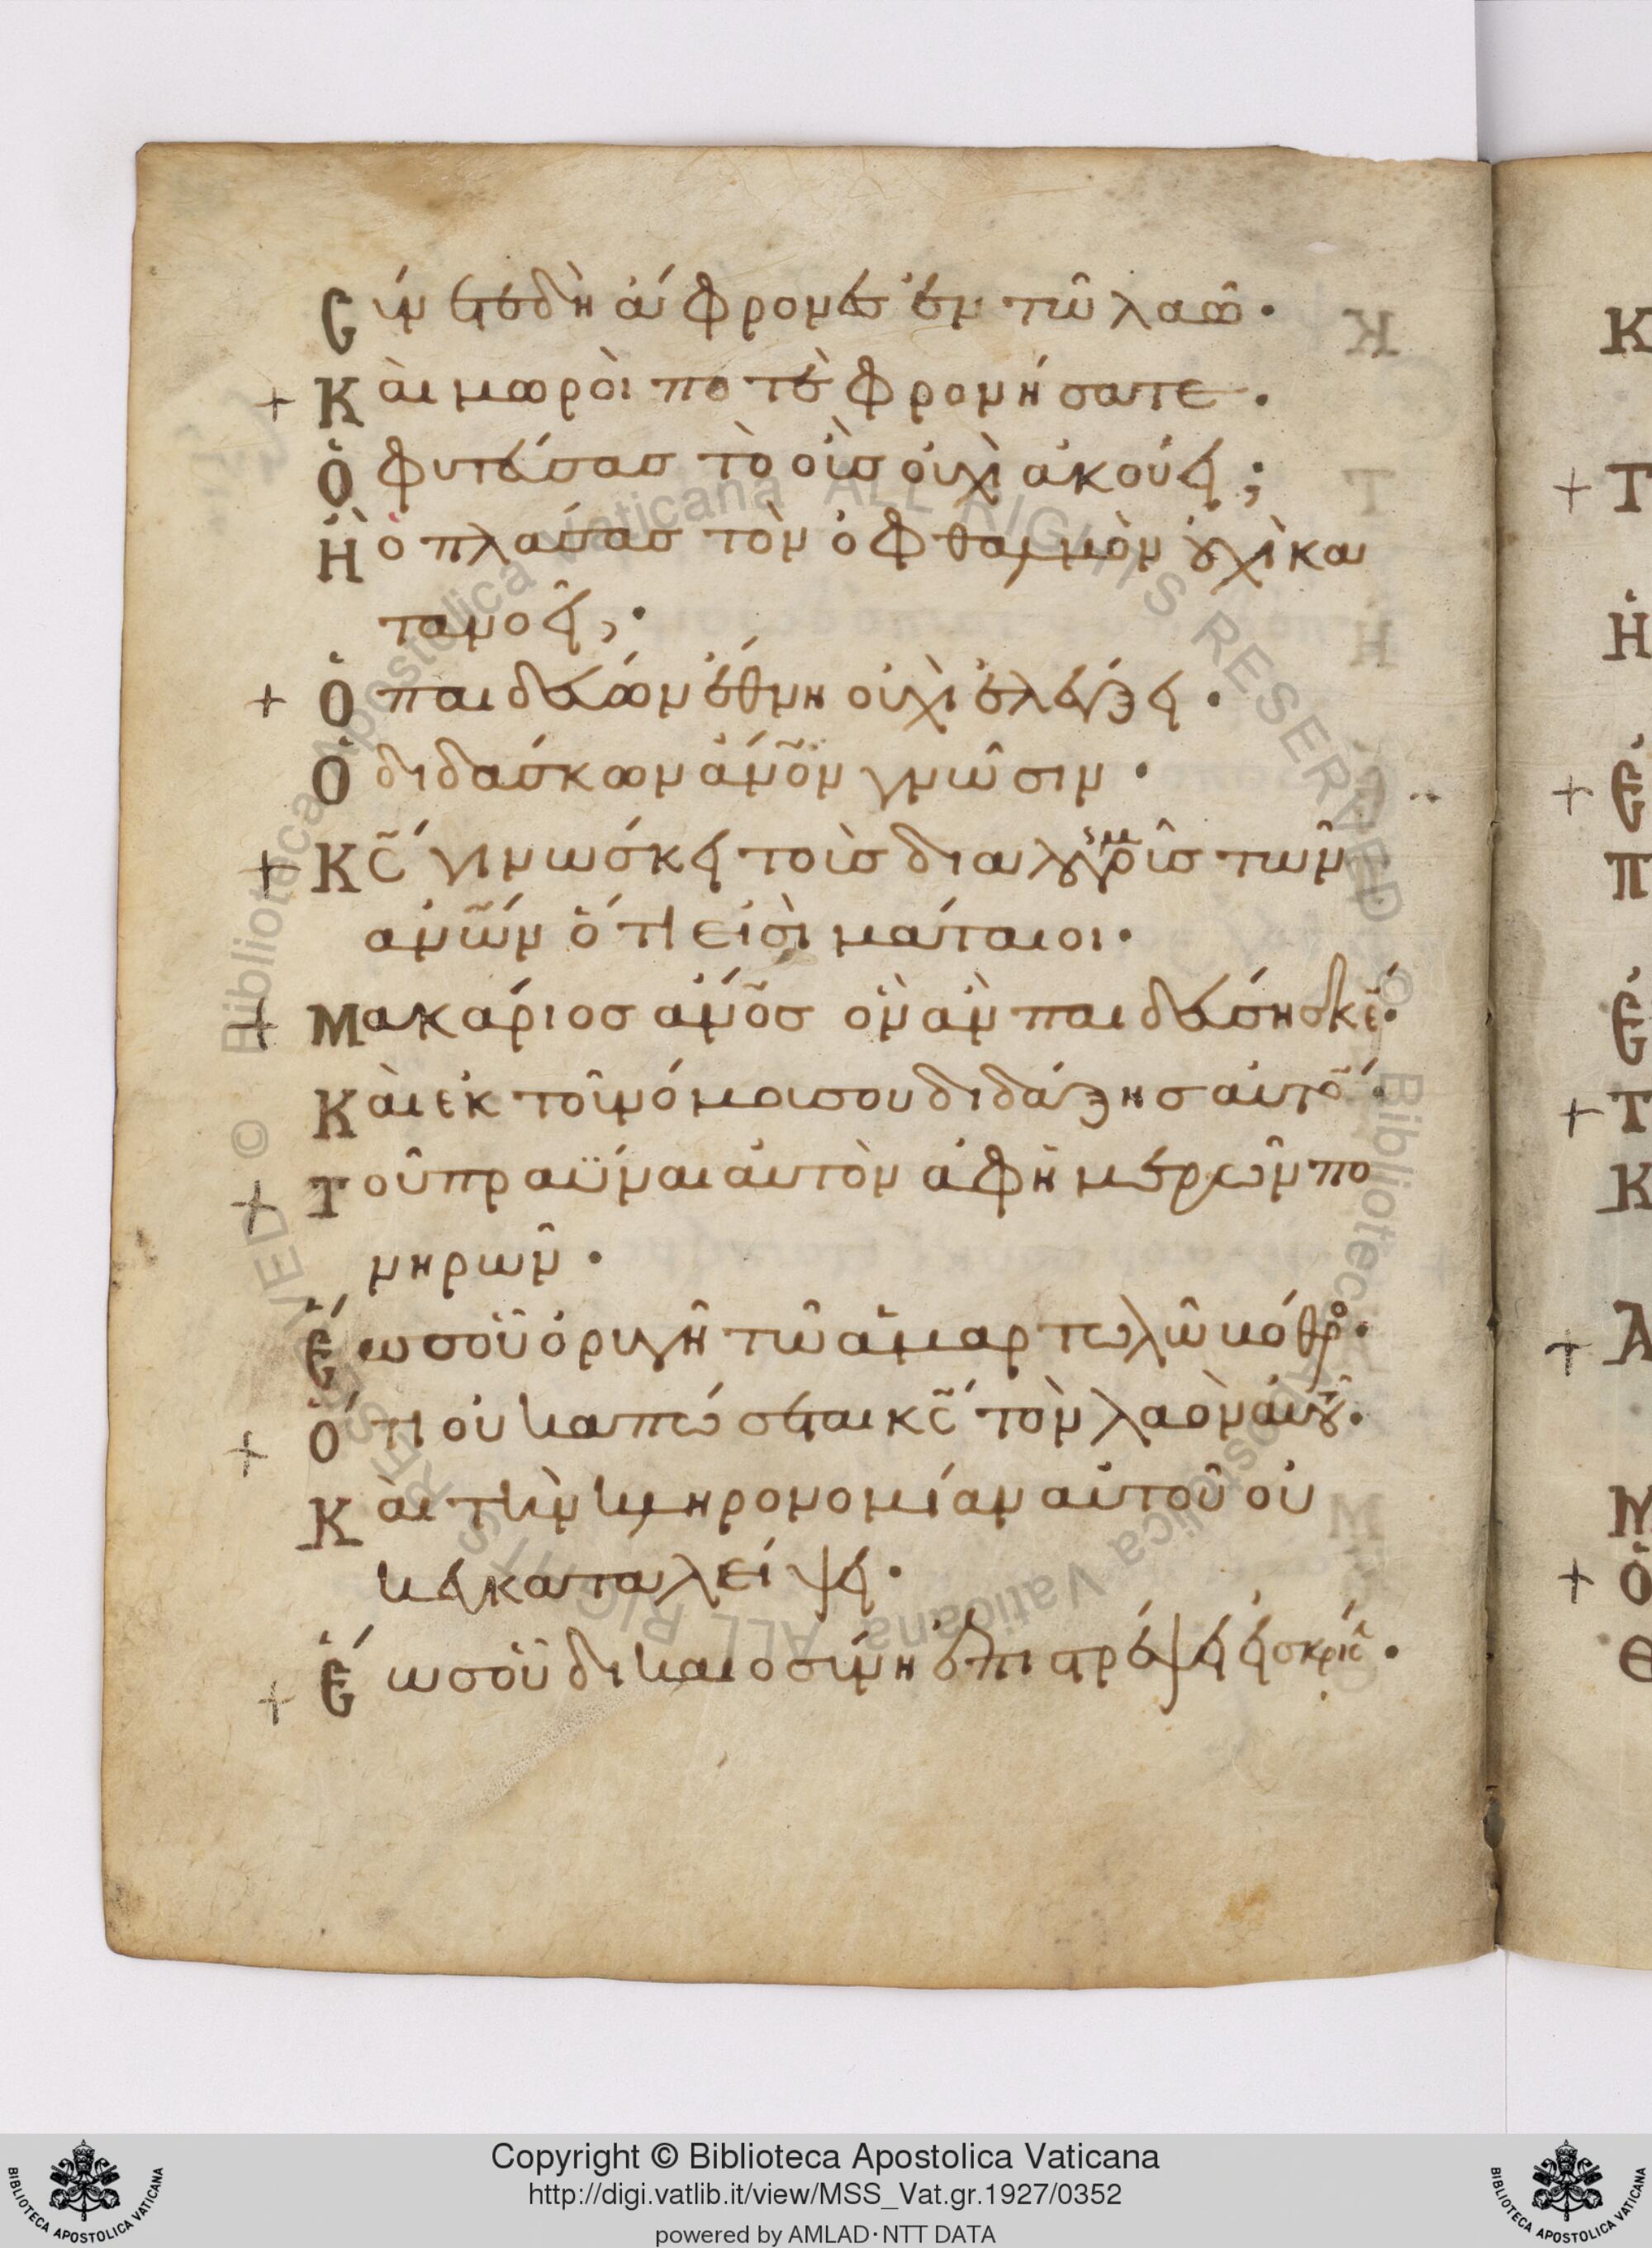 Σύνετε δὴ ἄφρονες ἐν τῶ λαῶ·
+ Καὶ μωροὶ ποτὲ φρονήσατε·
Ὁ φυτεύσας τὸ οὖς οὐχὶ ἀκούει;
Ἢ ὁ πλάσας τὸν ὀφθαλμὸν οὐχὶ κα
τανοεῖ;·
+ Ὁ παιδεύων ἔθνη οὐχὶ ἐλέγξει·
Ὁ διδάσκων ἄνο̅ν γνῶσιν·
+ Κ̅ς γινώσκει τοὺς διαλογισμοὺς τῶν
ἀν̅ων ὅτι εἰσὶ μάταιοι·
+ Μακάριος ἄν̅ος ὃν ἂν παιδεύσης κ̅ε·
Καὶ ἐκ τοῦ νόμου σου διδάξης αὐτό·
+ Τοῦ πραῧναι αὐτὸν ἀφ ἡμερῶν πο
νηρῶν·
Ἕως οὗ ὀρυγῆ τῶ ἁμαρτωλῶ βόθρο·
+ Ὅτι οὐκ ἀπώσεται κ̅ς τὸν λαὸν αὐτοῦ·
Καὶ τὴν κληρονομίαν αὐτοῦ οὐ
κ ἐγκαταλείψει·
+ Ἕως οὗ δικαιοσύνη ἐπιστρέψει εἰς κρίσ·
Κ
+ Τ
Ἡ
+ Ἐ
Π
Ἐ
+ Τ
Κ
+ Α
Μ
+ Ὁ
Θ
Copyright © Biblioteca Apostolica Vaticana
http://digi.vatlib.it/view/MSS_Vat.gr.1927/0352
powered by AMLAD·NTT DATA
BIBLIOTECA APOSTOLICA VATICANA
BIBLIOTECA APOSTOLICA VATICANA